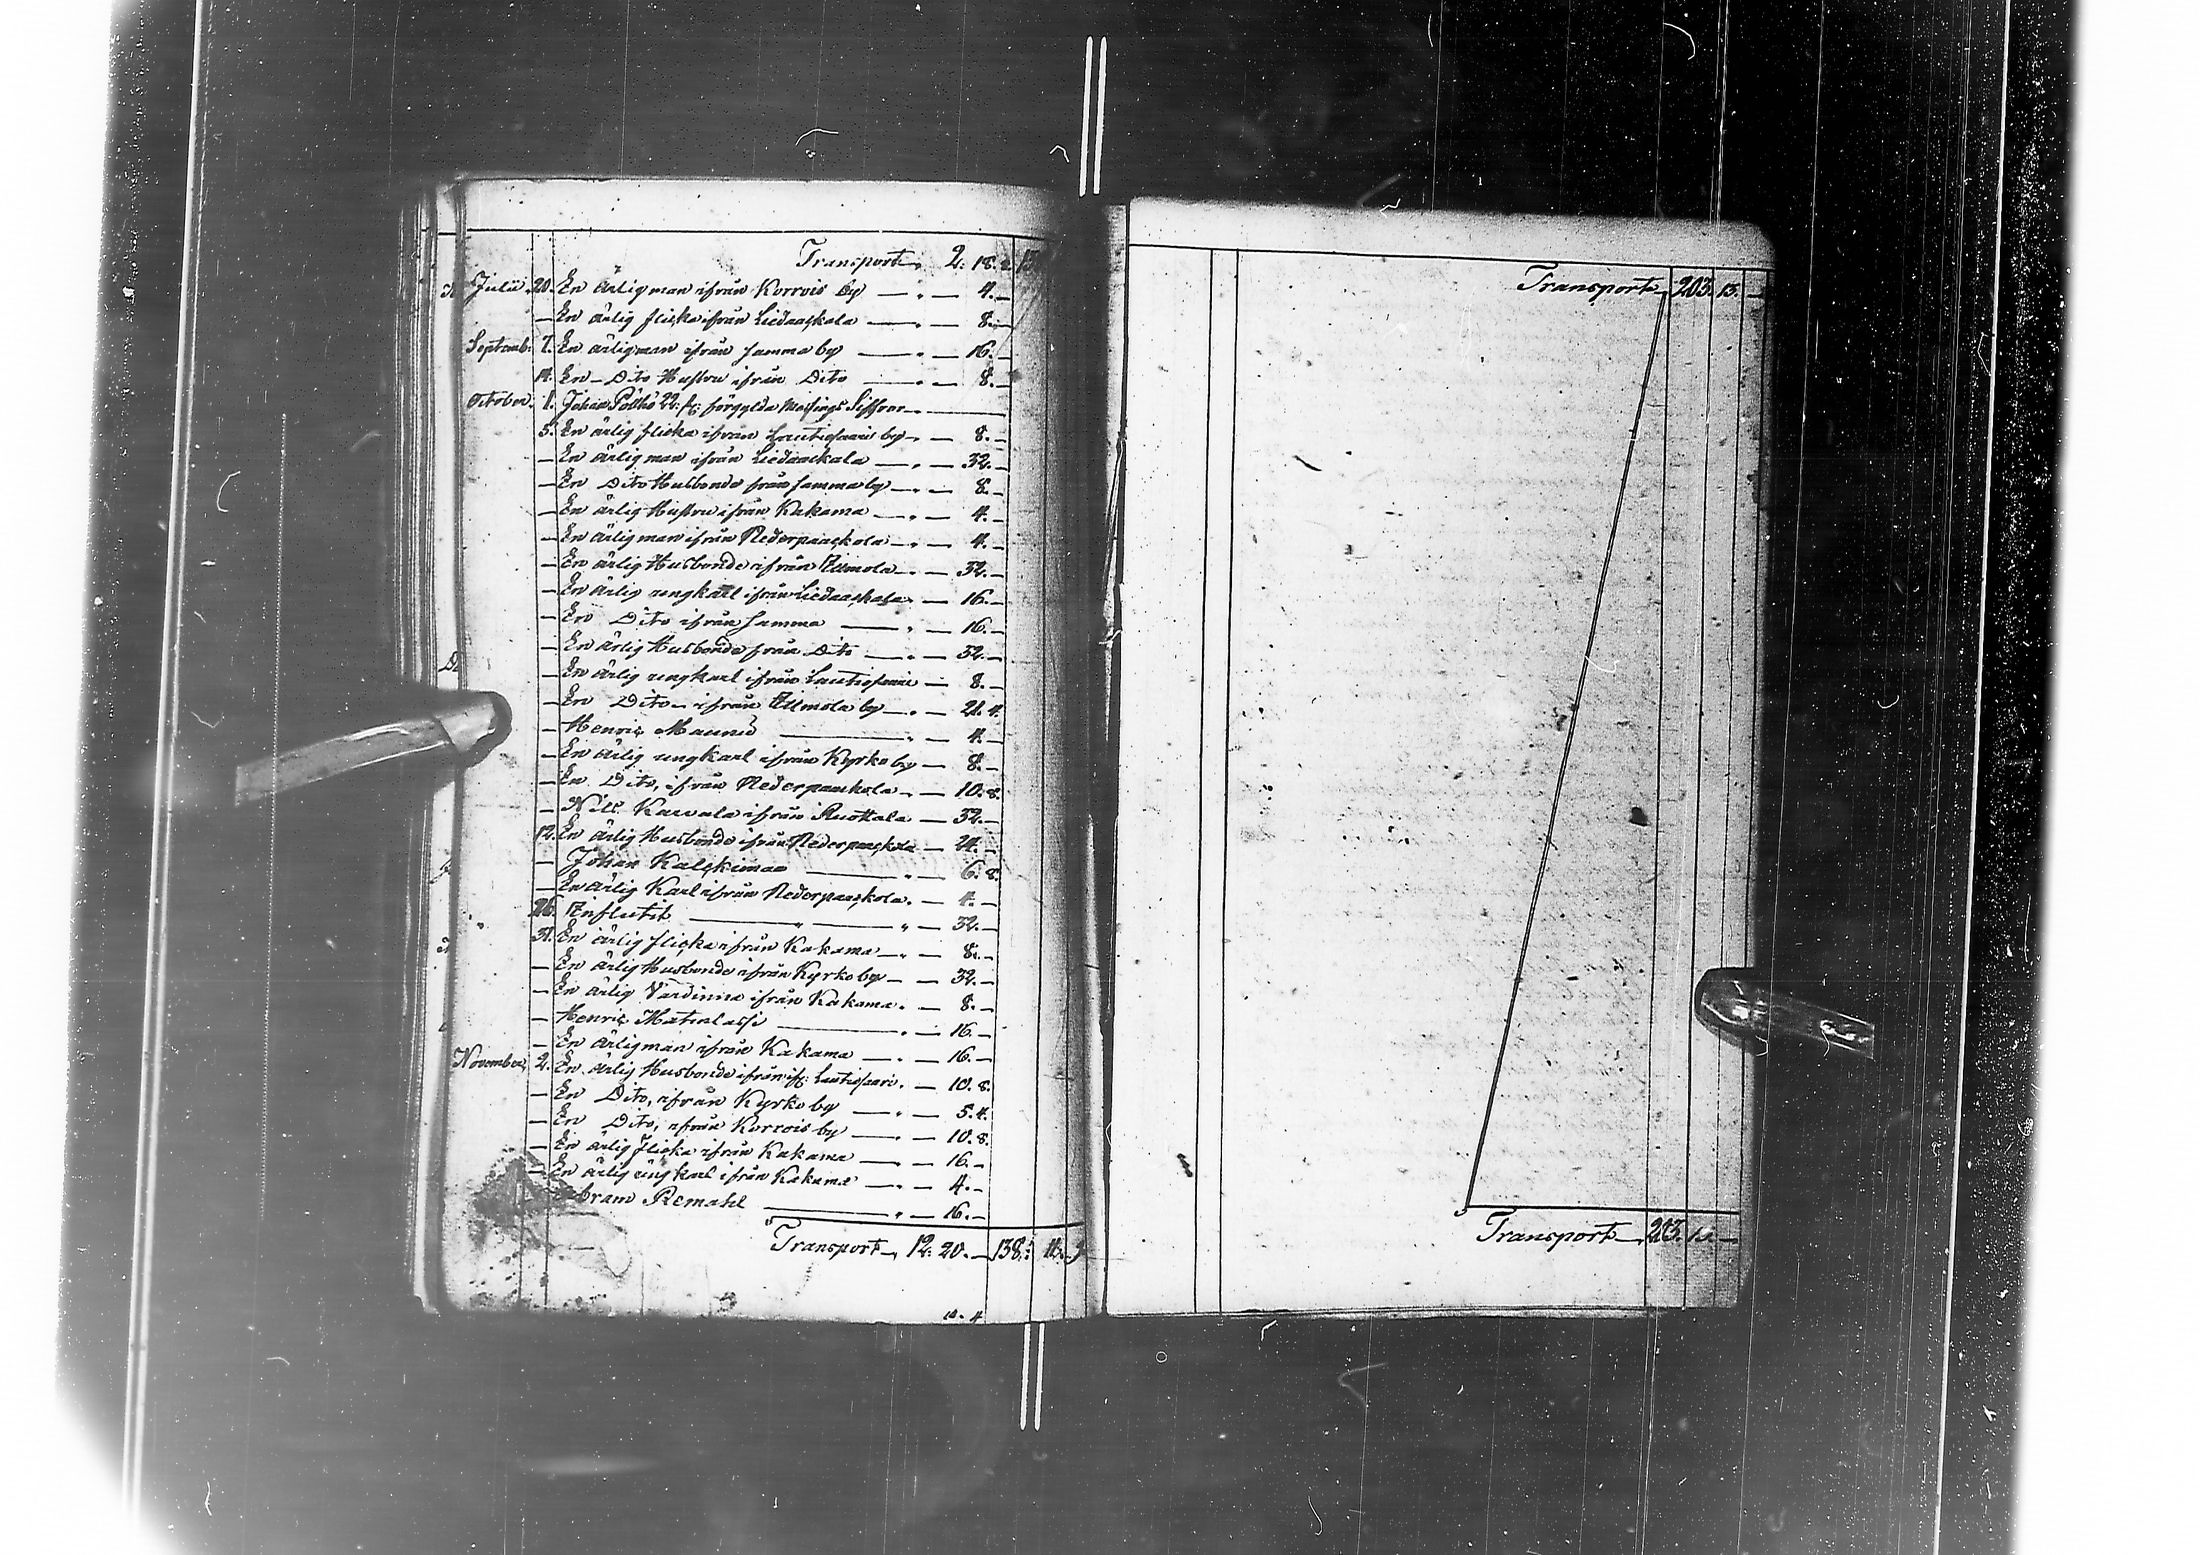 Transport, 2. 18.
Julii 20. En ärlig man ifrån Korrois by — " — 4. —
— En ärlig flicka ifrån Liedaaskala — " — 8. —
Septemb. 7. En ärlig man ifrån samma by — " — 16. —
14. En — Dito Hustru ifrån Dito — " — 8. —
October. 1. Johan 22. st: förgylda Messings Siffror
5. En ärlig flicka ifrån Lautiosaari by — 8. —
— En ärlig man ifrån Liedaaskala — " — 32. —
— En Dito Husbonde från samma by — " — 8. —
— En ärlig Hustru ifrån Kakama — " — 4. —
— En ärlig man ifrån Nederpaaskola — " — 4. —
— En ärlig Husbonde ifrån Ilmola — " — 32. —
— En ärlig ungkarl ifrån Liedaaskala — 16. —
— En Dito ifrån samma — " — 16. —
— En ärlig Husbonde från Dito — " — 32. —
— En ärlig ungkarl ifrån Lautiosaari — 8. —
— En Dito — ifrån Ilmola by — " — 21. 4.
— Henric Maunu — " — 4. —
— En ärlig ungkarl ifrån Kyrko by — 8. —
— En Dito, ifrån Nederpaaskola — 10. 8.
— Nils ifrån Ruottala — 32. —
12. En ärlig Husbonde ifrån Nederpaaskola — 24. —
— Johan Kalckimaa — " — 6. 8.
— En ärlig Karl ifrån Nederpaaskola. — 4. —
26. Influtit — " — " — 32. —
31. En ärlig flicka ifrån Kakama — " — 8. —
— En ärlig Husbonde ifrån Kyrko by — 32. —
— En ärlig Värdinna ifrån Kakama. — 8. —
— Henric Matinlassi — " — 16. —
— En ärlig man ifrån Kakama — " — 16. —
November, 2. En ärlig Husbonde ifrån Lautiosaari. — 10. 8.
— En Dito, ifrån Kyrko by — " — 5. 4.
— En Dito, ifrån Korrois by — " — 10. 8.
— En ärlig Flicka ifrån Kakama — " — 16. —
— En ärlig ungkarl ifrån Kakama — " — 4. —
Abram Remahl — " — 16. —
Transport, 12. 20. — 138. 11.
Transport, 203. 13. —
Transport, 203. 13. —